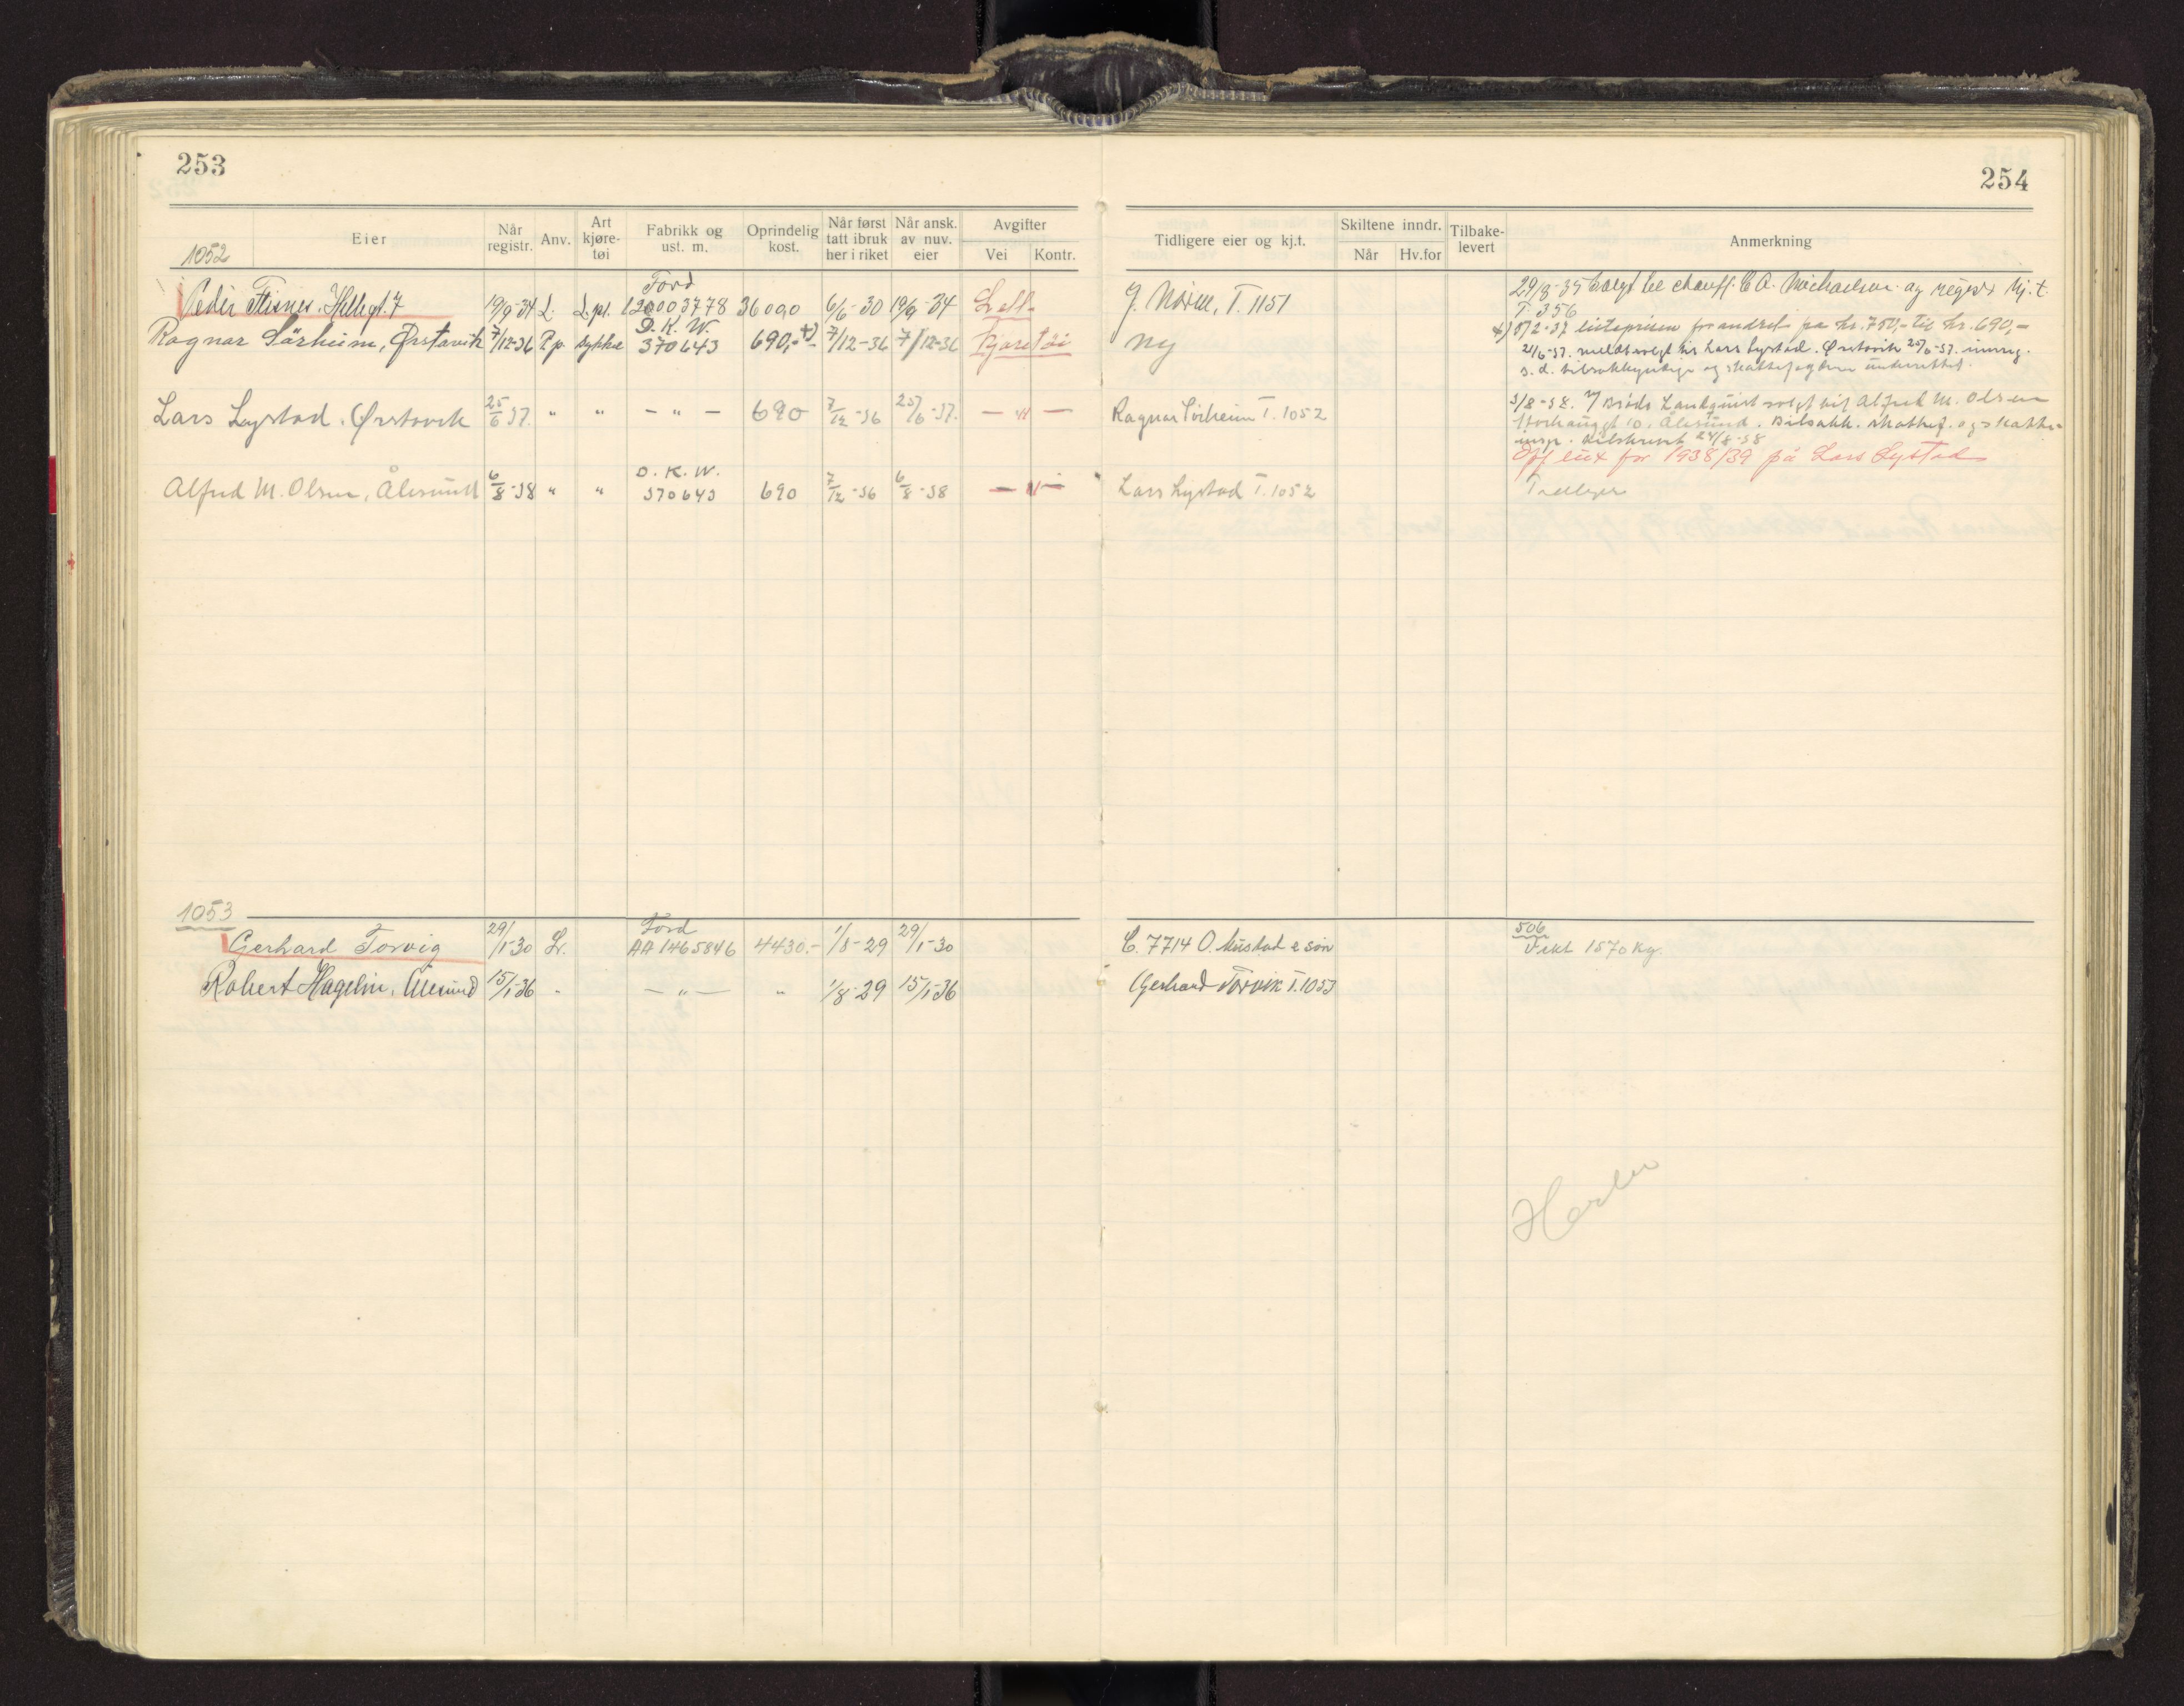 253
254
Eier
Når registr.
Anv.
Art kjøre-tøi
Fabrikk og ust. m.
Oprindelig kost.
Når først tatt ibruk her i riket
Når ansk. av nuv. eier
Avgifter
Vei
Kontr.
Tidligere eier og kj.t.
Skiltene inndr.
Når
Hv.for
Tilbake-levert
Anmerkning
1052
Peder Flisnes. 19/9-34 L. L.pl. Ford 12000 3778 3600,0 6/6-30 19/9-34 Lett J. T. 1151 29/8-35 Solgt C A. Michaelsen og kj.t.
T. 356
Ragnar Sørheim, Ørstavik 7/12-36 P.p. Sykkel D.K.W. 370643 690,- x) 7/12-36 7/12-36 kjøretøi Ny x) listeprisen forandret fra kr. 750,- til kr. 690,-
21/6-37. meldt solgt til Lars Lystad. Ørstavik 25/6-37. innreg.
s.d. bilsakkyndige og underrettet.
Lars Lystad. Ørstavik 25/6 37. " " - " - 690 7/12-36 25/6-37. - " - Ragnar Sørheim T. 1052 3/8-38. solgt til Alfred M. Olsen
10, Ålesund. Bilsakk. skattef. og skatte-
insp. tilskrevet 24/8-38
for 1938/39 på Lars Lystad
Alfred M. Olsen, Ålesund 6/8-38 " " D.K.W. 370643 690 7/12-36 6/8-38 - " - Lars Lystad T. 1052
1053
Gerhard Torvig 29/1-30 Lv. Ford AA 1465846 4430.- 1/8-29 29/1-30 C. 7714 O. Mustad & søn 506
Vekt 1570 kg.
Robert Hagelin, Ålesund 15/1-36 - - " - " 1/8-29 15/1-36 Gerhard Torvik T. 1053